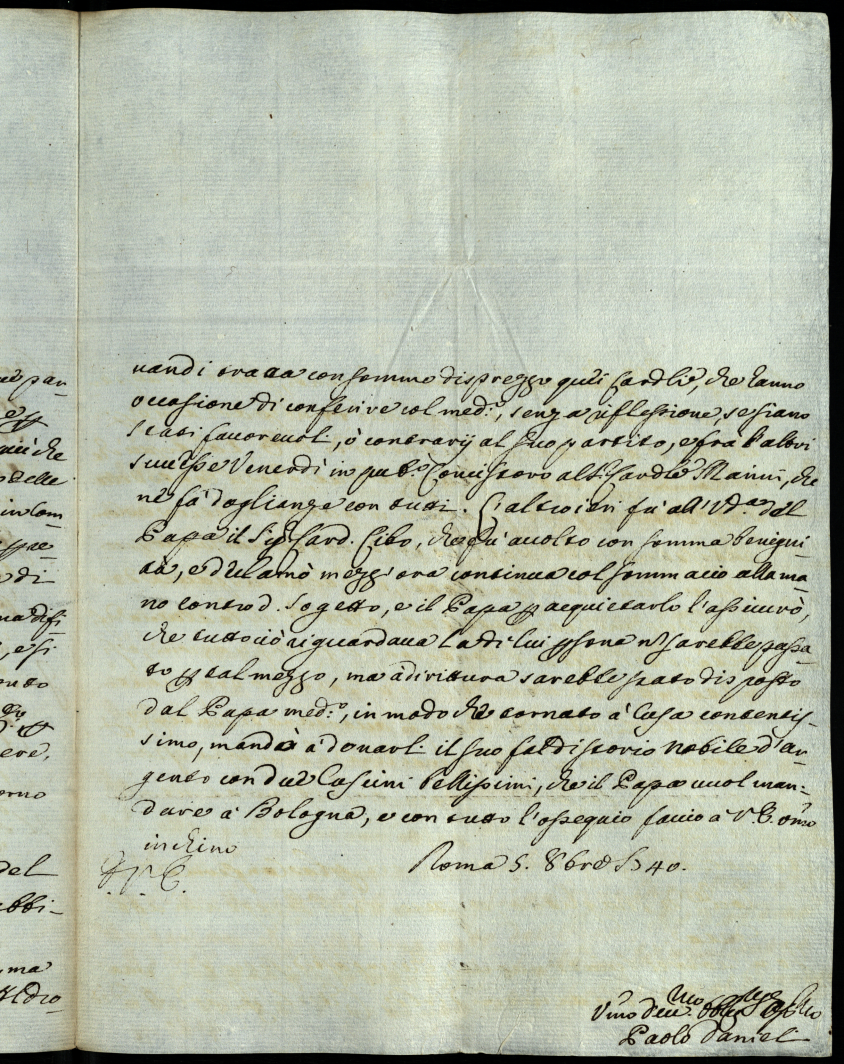 uandi ora da con sommo disprezzo quei Cardli, che hanno
occasione di conferire col med:º, senza riflessione se siano
stati fauoreuoli, ò contrarij al suo partito, e frà l'altri
successe Venerdì in pub:º Concistoro al Sig. Cardle Mainni, che
nè fà doglianze con tutti. L'altro ieri fù all'Vd.za del
Papa il Sig. Card. Cibo, che fù accolto con somma benigni-
tà, e declamò mezz'ora continua col sommacio alla ma-
no contro d. sogetto, e il Papa p acquietarlo l'assicurò,
che tutto ciò riguardaua la di lui psona nº sarebbe passa-
to p tal mezzo, ma à dirittura sarebbe stato disposto
dal Papa med:º, in modo che tornato à Casa contentis-
simo, mandò à donarli il suo faldistorio nobile d'ar-
gento con due Cuscini bellissimi, che il Papa vuol man-
dare à Bologna, e con tutto l'ossequio faccio à V.E. omo
inchino
Roma 5. 8bre 1740.
Paolo Daniel
par
che
delle
in Com
di
, e si
ere,
orno
del
ebbi-
ma